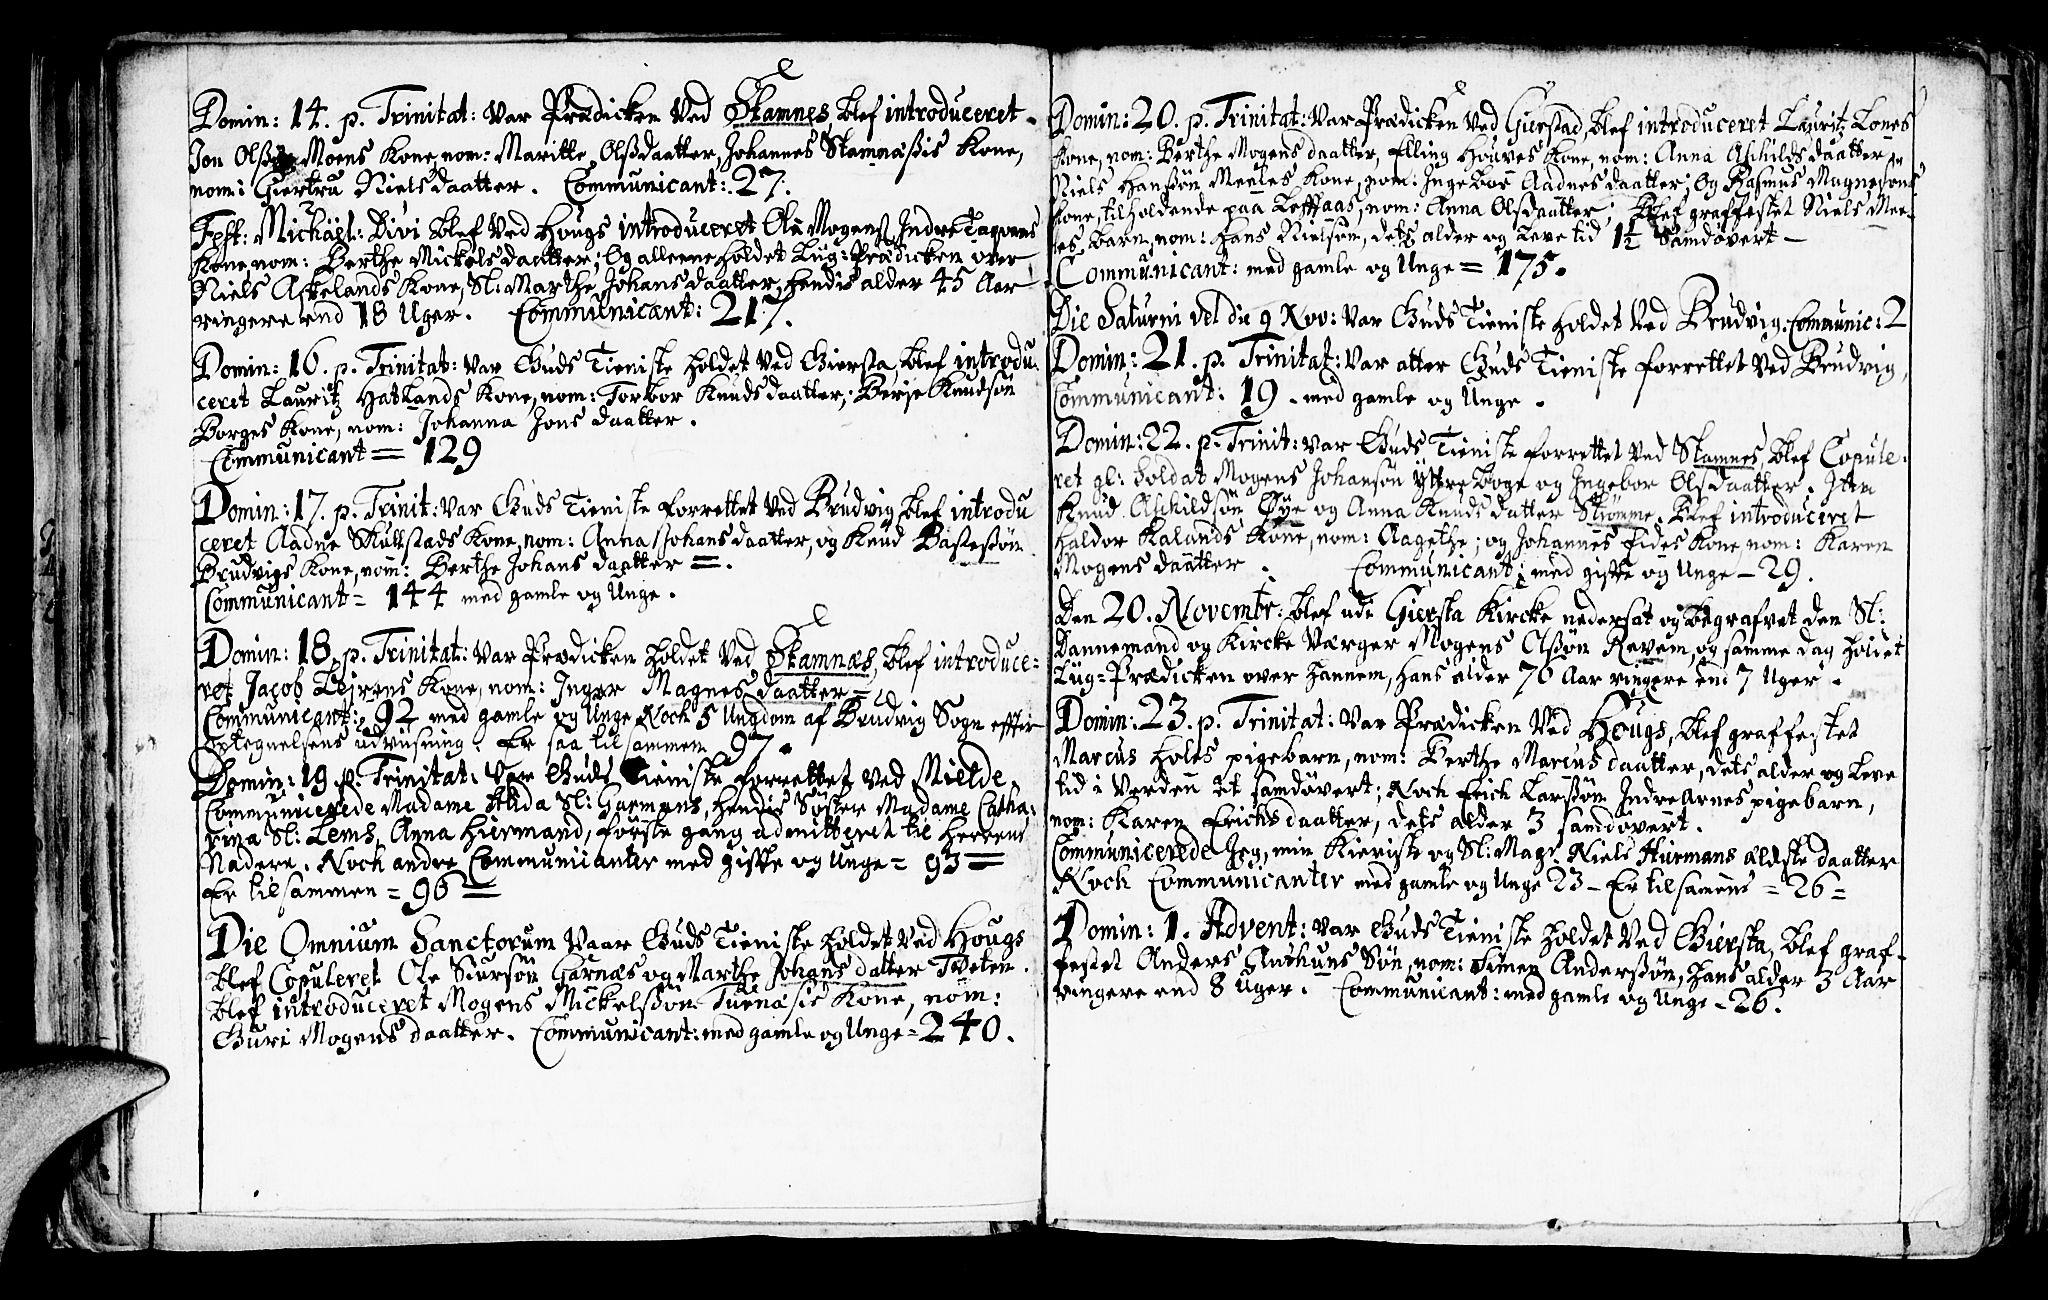 Domin: 14. p. Trinitat: var Prædicken ved Skamnes, blef introduceret
Jon Olss Moens Kone, nom: Maritte Olssdaatter, Johannes Skamnæssis Kone,
nom: Giertru Nielsdaatter. Communicant: 27.
Fest: Michäel: Divi blef ved Hougs introduceret Ole Mogens Indre
Kone, nom: Berthe Mickelsdaatter; Og alleene holdet Liig-Prædicken over
Niels Askelands Kone, Sl: Marthe Johansdaatter, hendis alder 45 Aar
ringere end 18 Uger. Communicant: 217.
Domin: 16. p. Trinitat: var Guds Tieniste holdet ved Giersta, blef introdu-
ceret Lauritz Hatlands Kone, nom: Torbor Knudsdaatter; Berje Knudsøn
Borges Kone, nom: Johanna Jonsdaatter.
Communicant = 129
Domin: 17. p. Trinit: var Guds Tieniste forrettet ved Brudvig, blef introdu
ceret Aadne Skullstads Kone, nom: Anna Johansdaatter, og Knud
Brudvigs Kone, nom: Berthe Johansdaatter =.
Communicant = 144 med gamle og Unge.
Domin: 18. p. Trinitat: var Prædicken holdet ved Skamnæs, blef introduce-
ret Jacob Kone, nom: Inger Magnesdaatter =
Communicant: 92 med gamle og Unge Noch 5 Ungdom af Brudvig Sogn effter
optegnelsens udviisning. Er saa tilsammen 97.
Domin: 19. p. Trinitat: Var Guds Tieniste forrettet ved Mielde,
Communicerede Madame Alida Sl: Garmans, hendis Søster Madame Catha-
rina Sl: Lems, Anna Hiermand, første gang admitteret til Herrens
Nadere. Noch andre Communicanter med giffte og Unge = 93 =
Er tilsammen = 96 =
Die Omnium Sanctorum Vaar Guds Tieniste holdet ved Hougs
blef Copuleret Ole Siursøn Garnæs og Marthe Johansdatter Tveten.
blef introduceret Mogens Mickelssøn Kone, nom:
Guri Mogensdaatter. Communicant: med gamle og Unge = 240.
Domin: 20. p. Trinitat: Var Prædicken ved Gierstad, blef introduceret Lauritz Lones
Kone, nom: Berthe Mogensdaatter, Elling Houves Kone, nom: Anna Aschildsdaatter
Niels Hanssøn Meeles Kone, nom: Ingebor Aadnesdaatter; Og Rasmus Magnesøns
Kone, tilholdende paa nom: Anna Olsdaatter; Blef graffestet Niels Mee-
les barn, nom: Hans Nielsøn, dets alder og Leve tid 1½ Samdøvert —
Communicant: med gamle og Unge = 175.
Die Saturni vel die 9 Nov: Var Guds Tieniste holdet ved Brudvig. Communic: 2
Domin: 21. p. Trinitat: Var atter Guds Tieniste forrettet ved Brudvig,
Communicant: 19. med gamle og Unge.
Domin: 22. p. Trinit: Var Guds Tieniste forrettet ved Skamnes, blef Copule-
ret gl: Soldat Mogens Johansøn Yttre Boge og Ingebor Olsdaatter. Item
Knud Aschildsøn Øye og Anna Knudsdatter Strømme. Blef introduceret
Haldor Kalands Kone, nom: Aagethe; og Johannes Eides Kone, nom: Karen
Mogensdaatter. Communicant: med giffte og Unge — 29.
Den 20. Novembr: blef udi Giersta Kircke nedersat og begrafvet den Sl:
Dannemand og Kircke Værger Mogens Olssøn Revem, og samme dag holdet
Liig-Prædicken over hannem, hans alder 70 Aar ringere end 7 Uger.
Domin: 23. p. Trinitat: Var Prædicken ved Hougs, blef graffestet
Marcus Holes pigebarn, nom: Berthe Marcusdaatter, dets alder og Leve
tid i Verden et samdøvert; Noch Erich Larssøn Indre Arnes pigebarn,
nom: Karen Erichsdaatter, dets alder 3 samdøvert.
Communicerede Jeg, min Kieriste og Sl: Magr. Niels Hiermans ældste daatter
Noch Communicanter med gamle og Unge 23 — Er tilsamens = 26 =
Domin: 1. Advent: Var Guds Tieniste holdet ved Giersta, blef graf-
festet Anders Authuns Søn, nom: Simen Anderssøn, hans alder 3 Aar
ringere end 8 Uger. Communicant: med gamle og Unge = 26.